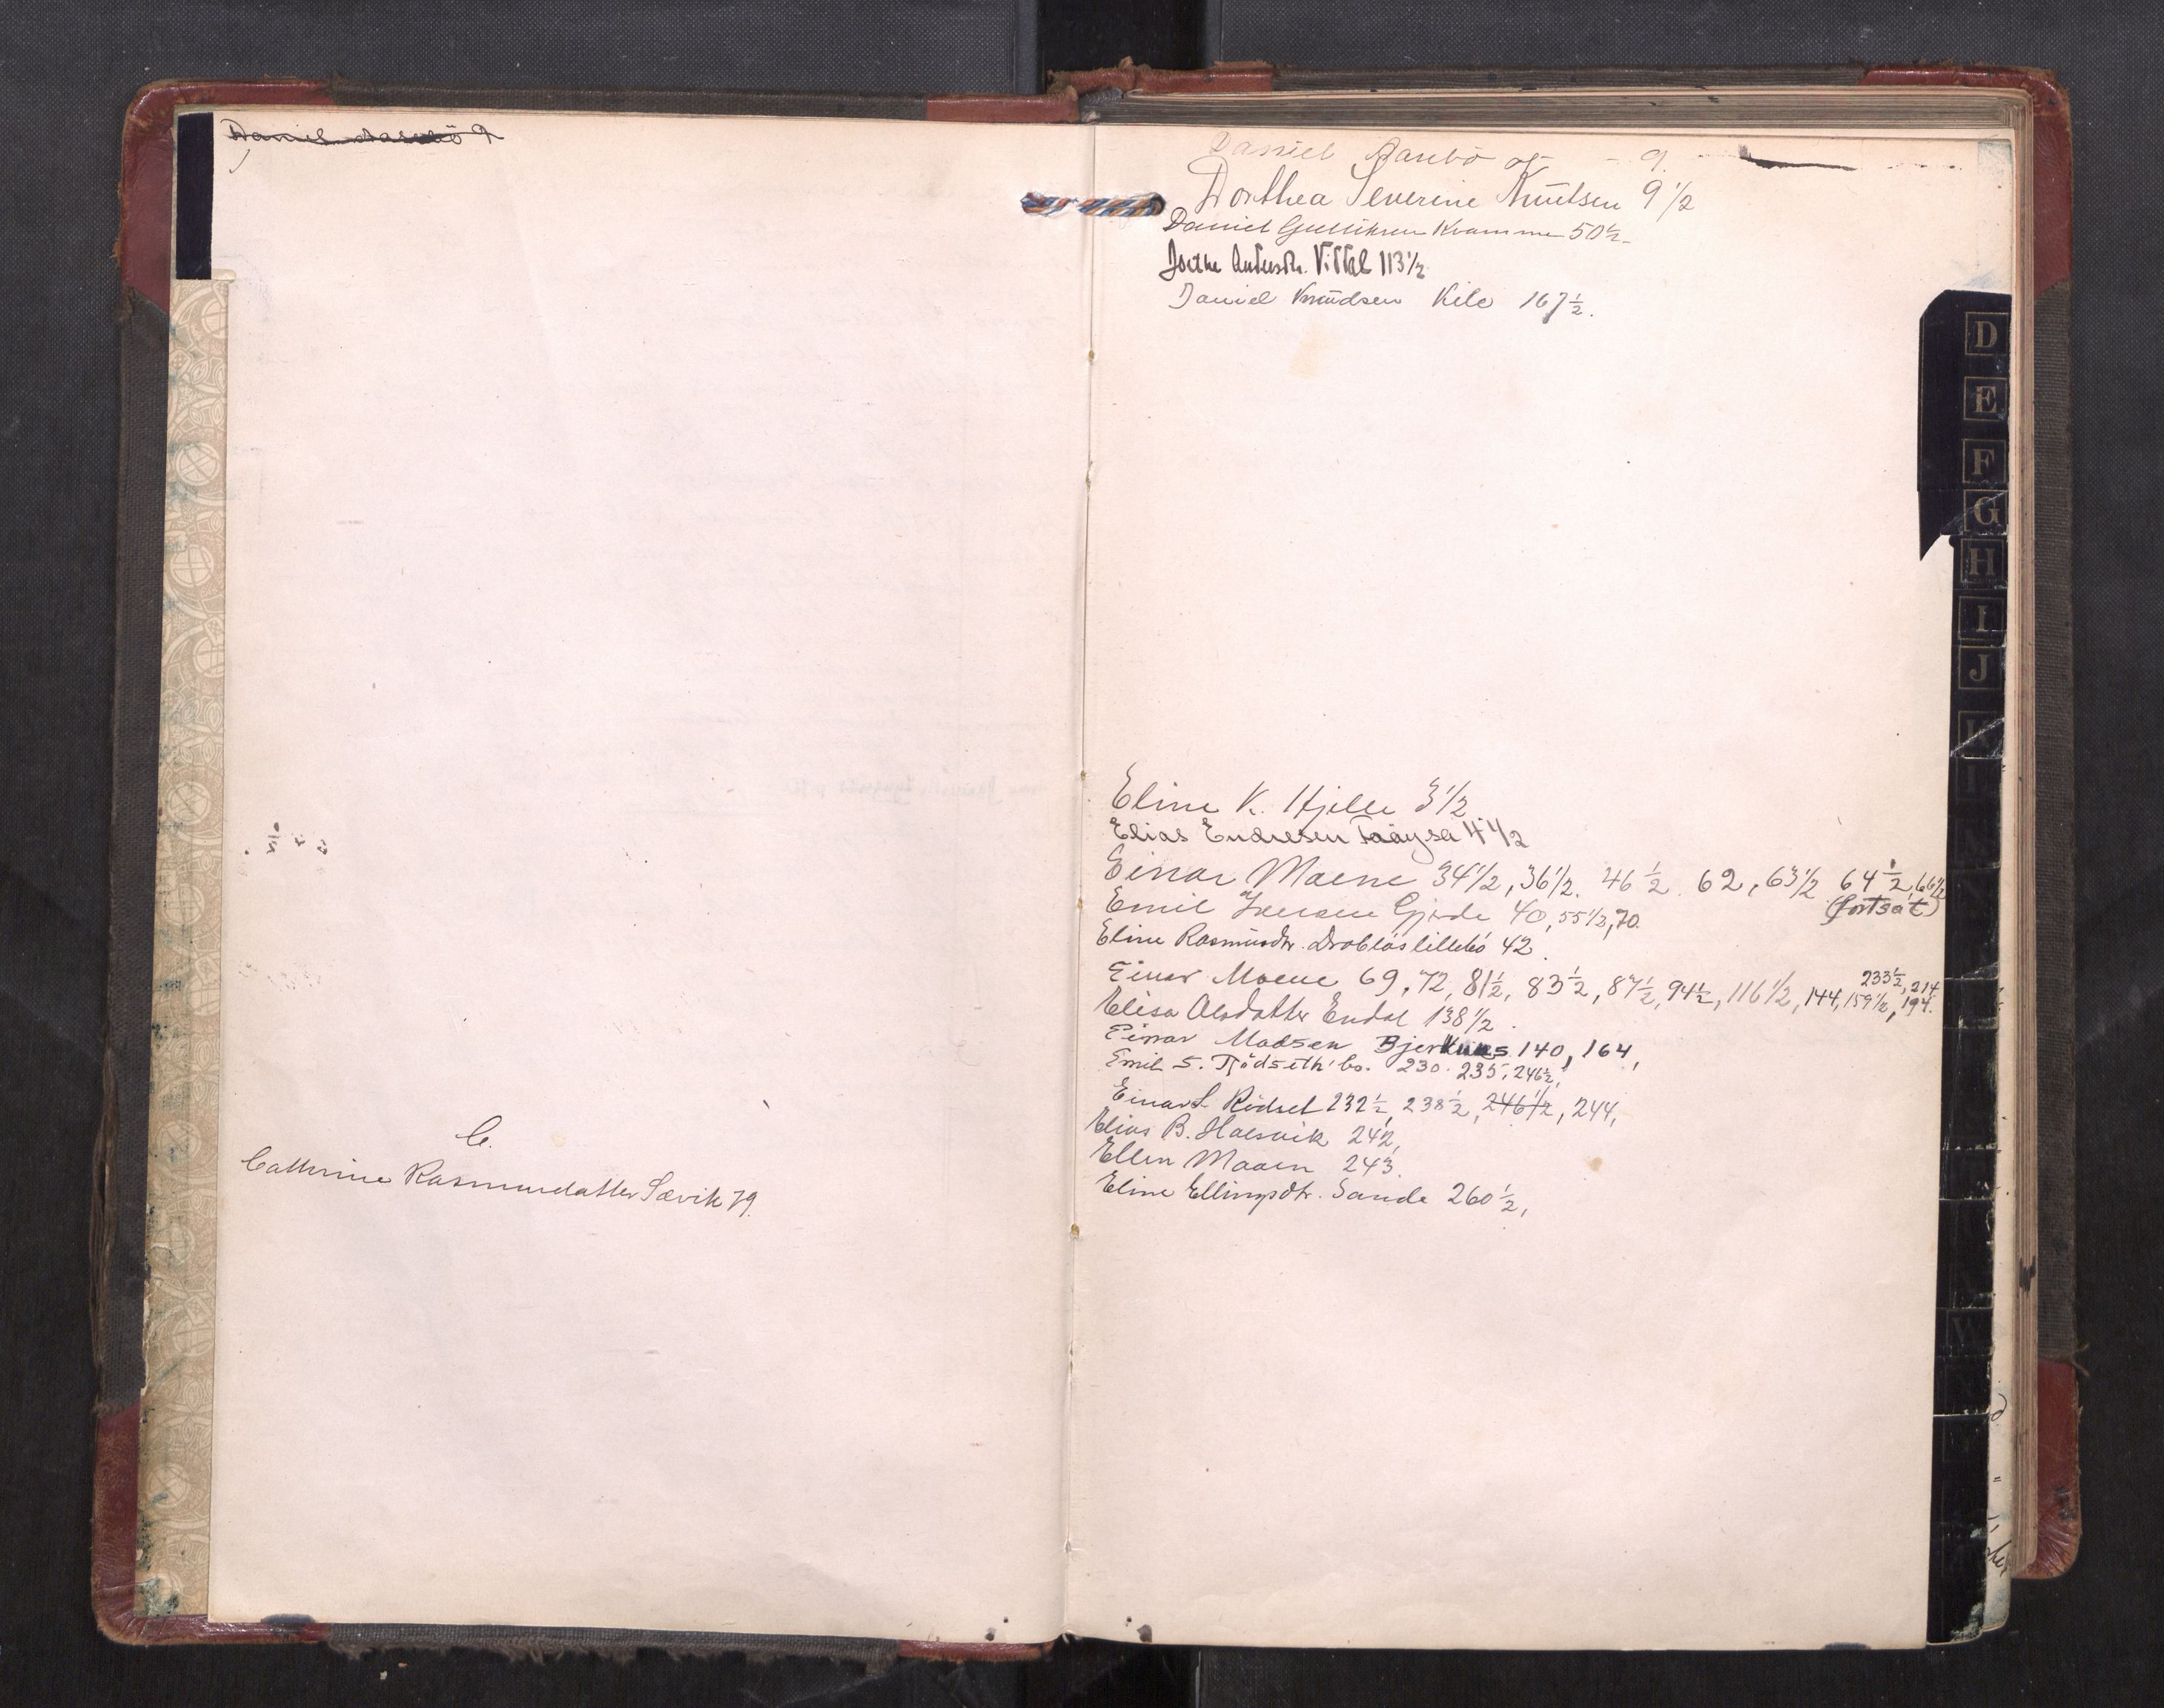 Daniel Aasebö 9
C.
Cathrine Rasmusdatter Sævik 79.
Daniel Aasebö og - 9.
Dorthea Severine Knutsen 9 1/2
Daniel Gulliksen Kvamme 50 1/2
Dorthe Andersdtr. Vittal 113 1/2
Daniel Knudsen Kile 167 1/2.
Eline K. Hjelle 3 1/2
Elias Endresen 4 1/2
Einar Moene 34 1/2, 36 1/2. 46 1/2. 62, 63 1/2 64 1/2, 66 1/2
(fortsat)
Emil Iversen Gjerde 40, 55 1/2, 70.
Eline Rasmusdtr. Drabløslillebö 42.
Einar Moene 69, 72, 81 1/2, 83 1/2, 87 1/2, 94 1/2, 116 1/2, 144, 159 1/2, 194.
233 1/2, 214.
Elisa Olsdatter Endal 138 1/2.
Einar Madsen Bjerknes 140, 164,
Emil S. Tjödseth' bo. 230. 235, 246 1/2,
Einar L Rödset 232 1/2, 238 1/2, 246 1/2, 244,
Elias B. Halsvik 242,
Ellen Maaen 243.
Eline Ellingsdtr. Sande 260 1/2,
D
E
F
G
H
I
J
K
N
W